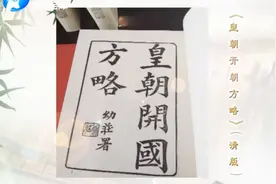 皇朝開國
方略
幼莊署
《皇朝开朝方略》（清版）